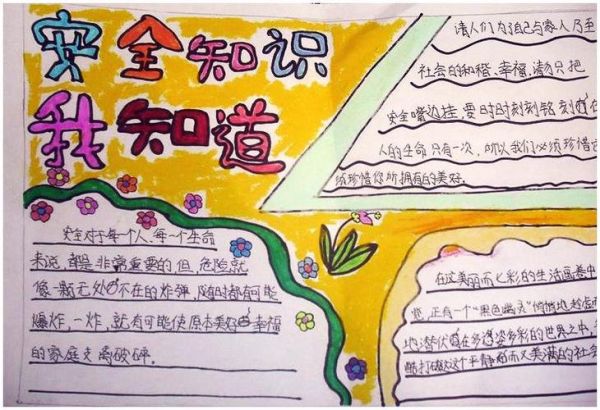 安全知识
我知道
请人们为了自己与家人乃至
社会的和稽、幸福,请勿只把
安全嘴边挂,要时时刻刻铭刻在
人的生命只有一次,所以我们必须珍惜
须珍惜您所拥有的美好.
安全对于每一个人、每一个生命
来说,都是非常重要的但危险就
像一颗无处不在的炸弹,随时都有可能
爆炸,一炸,就有可能使原本美好幸福
的家庭支离破碎.
在这美丽而七彩的生活画卷中
正有一个“黑色幽灵”悄悄地
地潜伏在多姿多彩的世界之中,
酷打破这个平静而又美满的社会